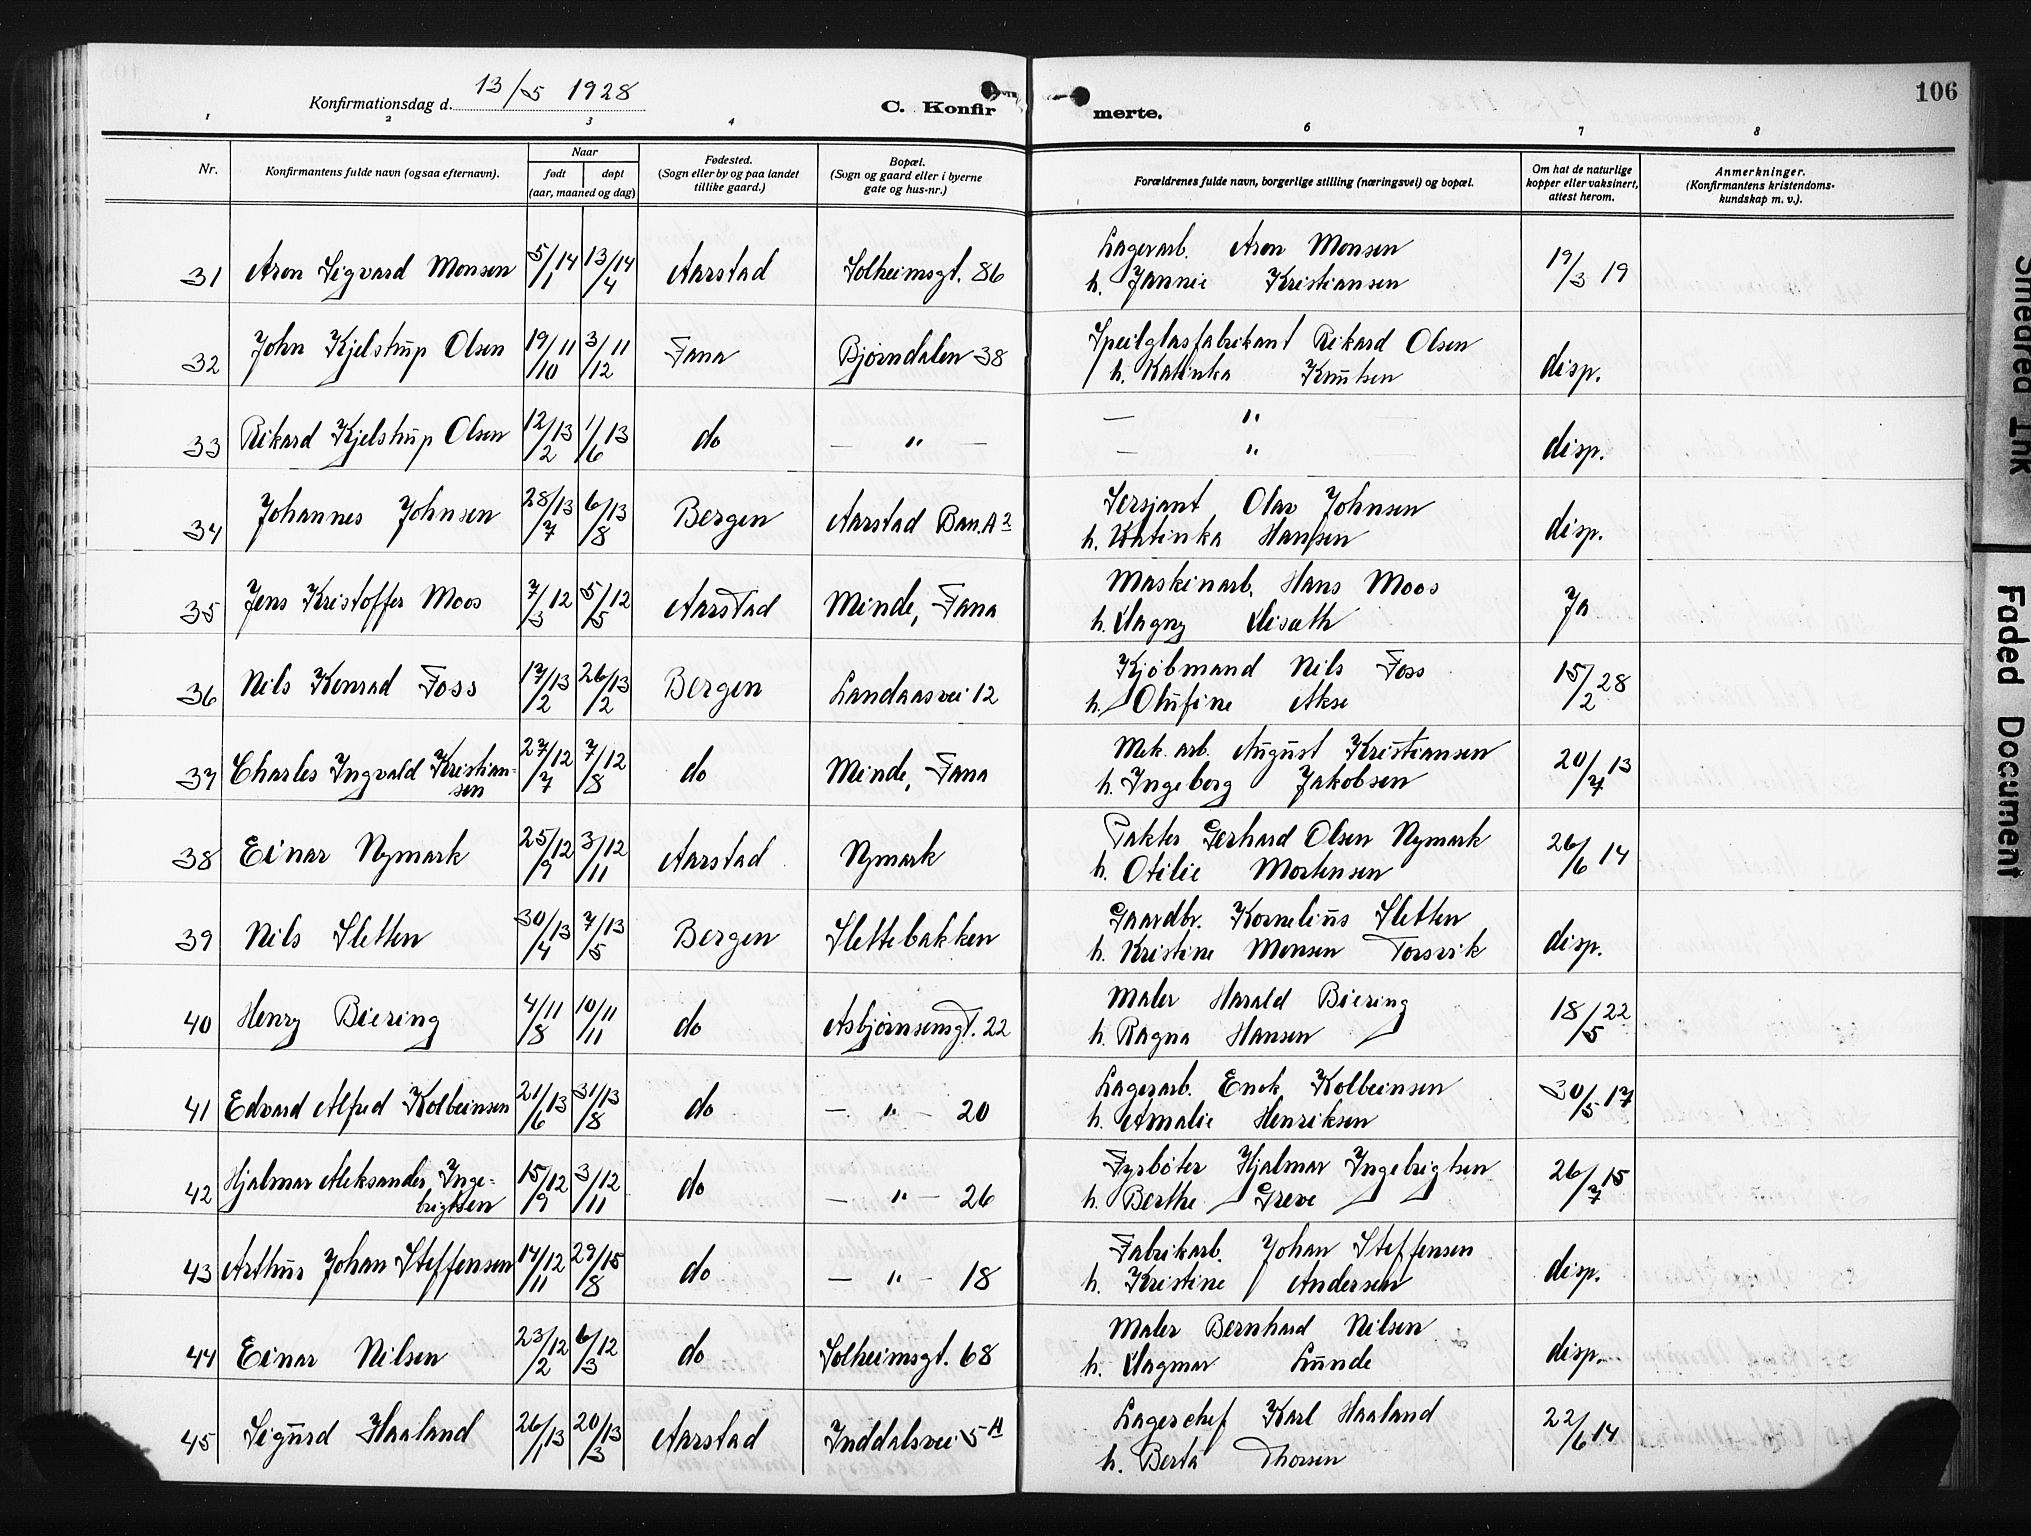 106
Konfirmationsdag d. 13/5 1928
C. Konfirmerte.
1 2 3 4 6 7 8
Nr.
Konfirmantens fulde navn (ogsaa efternavn).
Naar
født døpt
(aar, maaned og dag)
Fødested.
(Sogn eller by og paa landet
tillike gaard.)
Bopæl.
(Sogn og gaard eller i byerne
gate og hus-nr.)
Forældrenes fulde navn, borgerlige stilling (næringsvei) og bopæl.
Om hat de naturlige
kopper eller vaksinert,
attest herom.
Anmerkninger.
(Konfirmantens kristendoms-
kundskap m. v.).
31 Aron Sigvard Monsen 5/1 14 13/4 14 Aarstad Solheimsgt. 86 Lagerarb. Aron Monsen 19/3 19
h. Jannie Kristiansen
32 John Kjelstrup Olsen 19/10 11 3/12 11 Fana Bjørndalen 38 Speilglasfabrikant Rikard Olsen disp.
h. Katinka Knutsen
33 Rikard Kjelstrup Olsen 12/2 13 1/6 13 do — " — — " disp.
— "
34 Johannes Johnsen 28/7 13 6/8 13 Bergen Aarstad Ban. A 2 Sersjant Olav Johnsen disp.
h. Katinka Hansen
35 Jens Kristoffer Moos 7/3 12 5/5 12 Aarstad Minde, Fana Maskinarb. Hans Moos Ja
h. Dagny Disæth
36 Nils Konrad Foss 17/2 13 26/2 13 Bergen Landaasvei 12 Kjøbmand Nils Foss 15/2 28
h. Olufine Akse
37 Charles Ingvald Kristian- 27/7 12 7/8 12 do Minde, Fana Mek. arb. August Kristiansen 20/7 13
sen h. Ingeborg Jakobsen
38 Einar Nymark 25/9 12 3/11 12 Aarstad Nymark Pakter Gerhard Olsen Nymark 26/6 14
h. Otilie Mortensen
39 Nils Sletten 30/4 13 7/5 13 Bergen Slettebakken Gaardbr. Kornelius Sletten disp.
h. Kristine Monsen Torsvik
40 Henry Biering 4/8 11 10/11 11 do Asbjørnsensgt. 22 Maler Harald Biering 18/5 22
h. Ragna Hansen
41 Edvard Alfred Kolbeinsen 21/6 13 31/8 13 do — " — 20 Lagerarb. Enok Kolbeinsen 30/5 17
h. Amalie Henriksen
42 Hjalmar Aleksander Inge- 15/9 12 3/11 12 do — " — 26 Fyrbøter Hjalmar Ingebrigtsen 26/7 15
brigtsen h. Berthe Greve
43 Arthur Johan Steffensen 14/11 12 29/8 15 do — " — 18 Fabrikarb. Johan Steffensen disp.
h. Kristine Andersen
44 Einar Nilsen 23/2 12 6/3 12 do Solheimsgt. 68 Maler Bernhard Nilsen disp.
h. Dagmar Lunde
45 Sigurd Haaland 26/1 13 20/3 13 Aarstad Inddalsvei 5 A Lagerchef Karl Haaland 22/6 14
h. Berta Thorsen
Smedred Ink
Faded Document